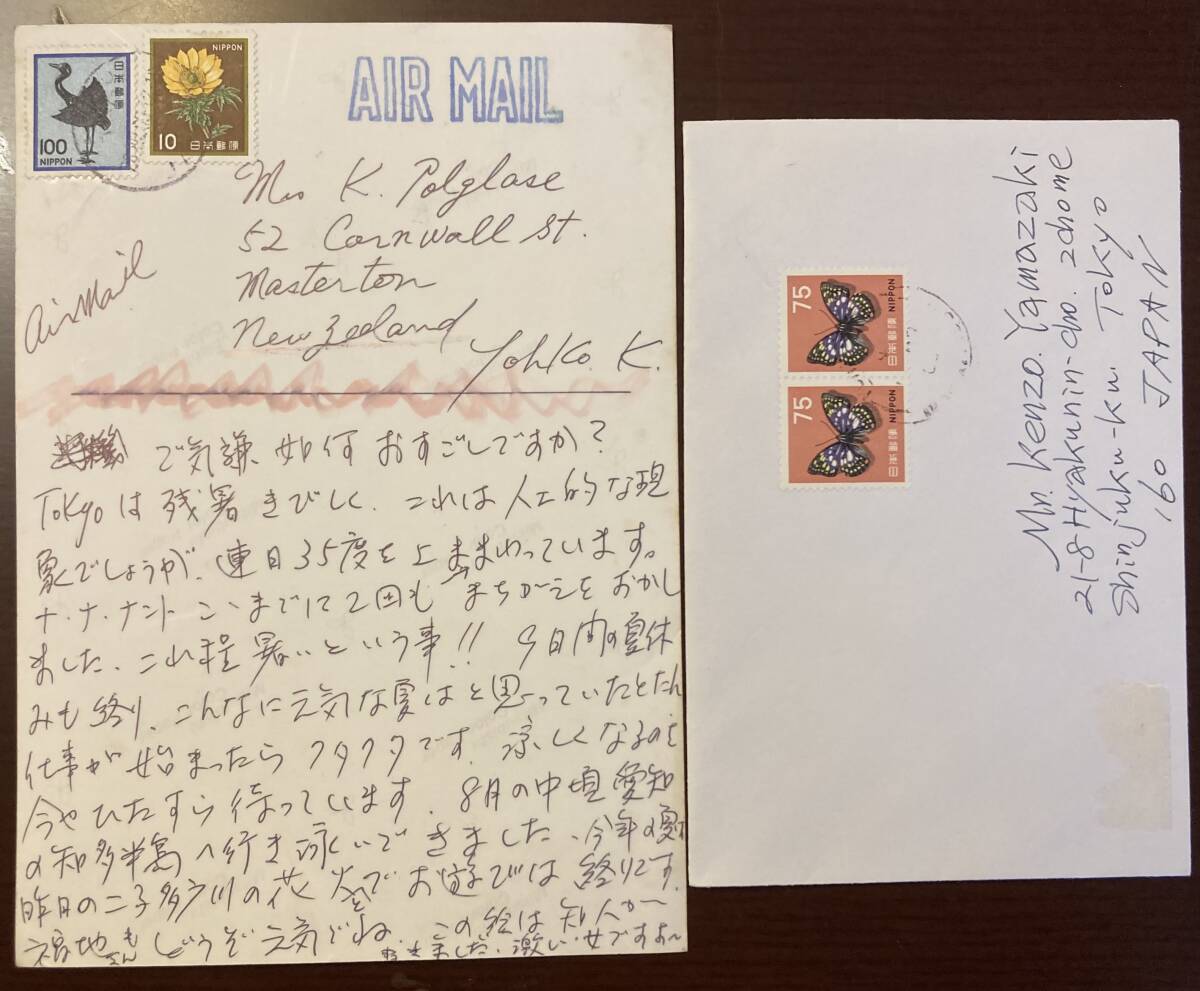 日本郵便
100
NIPPON
NIPPON
10
日本郵便
AIR MAIL
Mrs K. Polglase
52 Cornwall St.
Masterton
New Zeeland
Air Mail
Yohko. K.
で気謙如何おすごしですか?
Tokyoは残暑きびしく、これは人工的な現
象でしょうが、連日35度を上まわっています。
ナ・ナ・ナント ここまでに2回もまちがえをおかし
ました、これ程暑いという事!! 9日間の夏休
みも終り、こんなに元気な夏はと思っていたとたん
仕事が始まったらクタクタです。涼しくなるのを
今やひたすら待っています。8月の中頃愛知
の知多半島へ行き泳いできました、今年の夏は
昨日の二子多摩川の花火でお遊びは終りです。
もどうぞ元気でね この絵は知人が
ました、激しい女ですよ〜
75
NIPPON
日本郵便
75
NIPPON
日本郵便
Mr. Kenzo. Yamazaki
21-8 Hyakunin-cho. 2chome
Shinjuku-ku. Tokyo
160 JAPAN